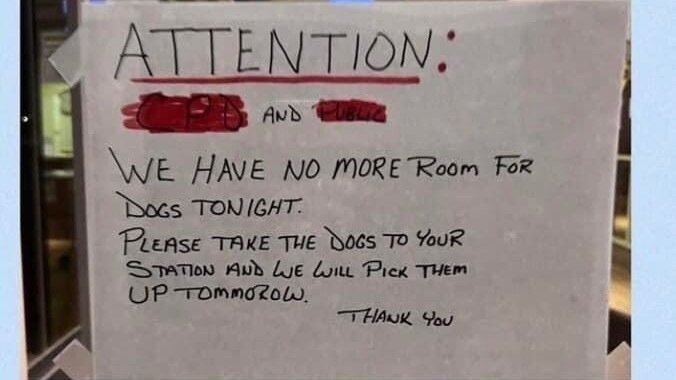 ATTENTION:
CPD AND PUBLIC
WE HAVE NO MORE ROOM FOR
DOGS TONIGHT.
PLEASE TAKE THE DOGS TO YOUR
STATION AND WE WILL PICK THEM
UP TOMMOROW.
THANK YOU